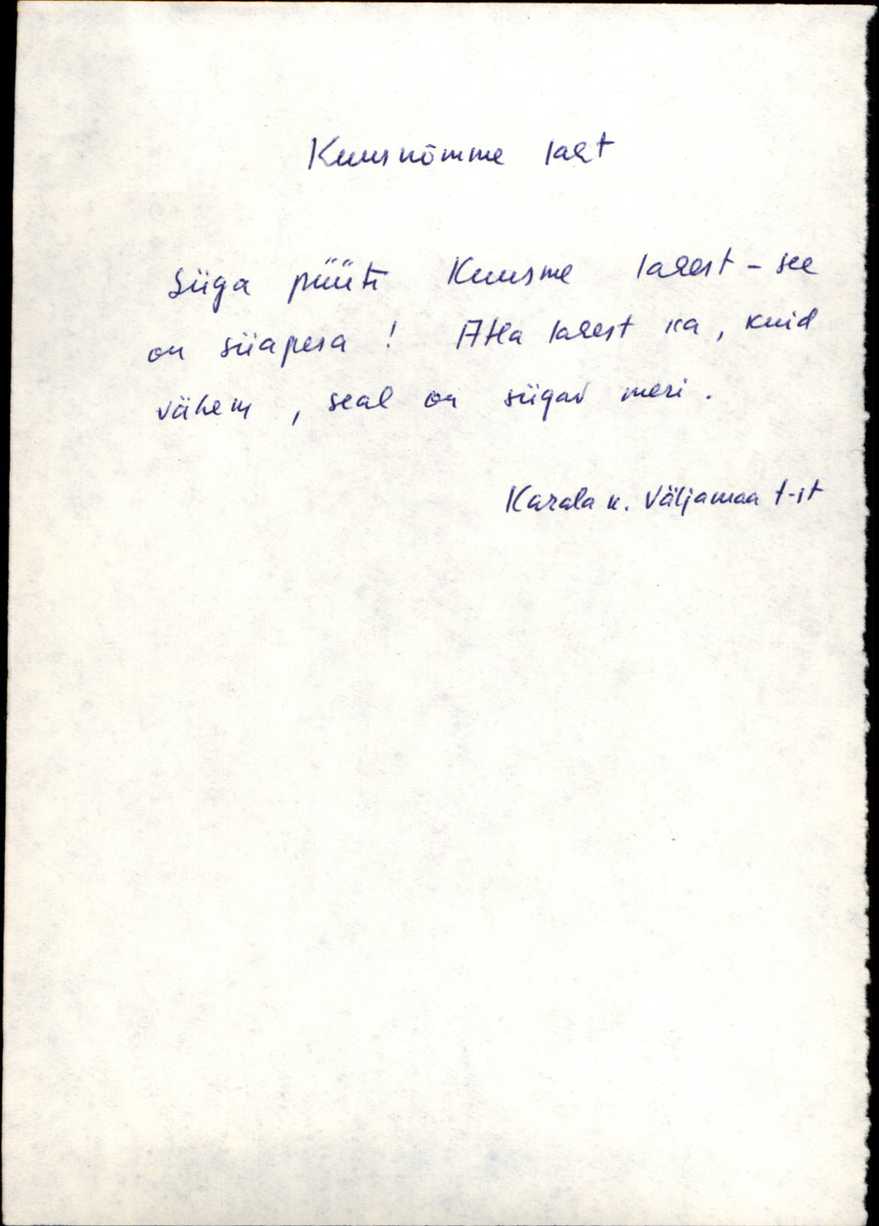 Kuusnõmme laht
Siiga püüti Kuusme lahest - see
on siiapesa ! Atla lahest ka, kuid
vähem , seal on sügav meri .
Karala k. Väljamaa t-st